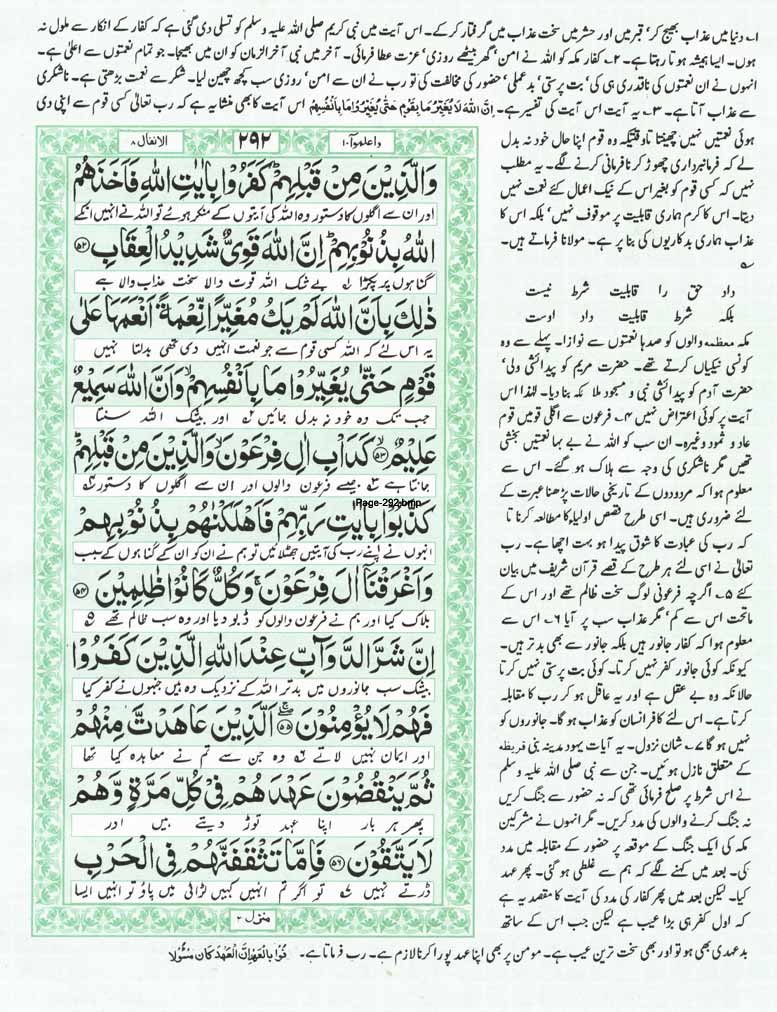 ۱۔ دنیا میں عذاب بھیج کر‘ قبر میں اور حشر میں سخت عذاب میں گرفتار کر کے۔ اس آیت میں نبی کریم صلی اللہ علیہ وسلم کو تسلی دی گئی ہے کہ کفار کے انکار سے ملول نہ
ہوں۔ ایسا ہمیشہ ہوتا رہتا ہے۔ ۲۔ کفار مکہ کو اللہ نے امن‘ گھر بیٹھے روزی‘ عزت عطا فرمائی۔ آخر میں نبی آخر الزمان کو ان میں بھیجا۔ جو تمام نعمتوں سے اعلیٰ ہے۔
انہوں نے ان نعمتوں کی ناقدری ہی کی‘ بت پرستی‘ بدعملی‘ حضور کی مخالفت کی تو رب نے ان سے امن‘ روزی سب کچھ چھین لیا۔ شکر سے نعمت بڑھتی ہے۔ ناشکری
سے عذاب آتا ہے۔ ۳۔ یہ آیت اس آیت کی تفسیر ہے۔ اِنَّ اللّٰهَ لَا يُغَيِّرُ مَا بِقَوْمٍ حَتّٰى يُغَيِّرُوْا مَا بِاَنْفُسِهِمْ اس آیت کا بھی منشا یہ ہے کہ رب تعالیٰ کسی قوم سے اپنی دی
ہوئی نعمتیں نہیں چھینتا تاوقتیکہ وہ قوم اپنا حال خود نہ بدل
لے کہ فرمانبرداری چھوڑ کر نافرمانی کرنے لگے۔ یہ مطلب
نہیں کہ کسی قوم کو بغیر اس کے نیک اعمال کئے نعمت نہیں
دیتا۔ اس کا کرم ہماری قابلیت پر موقوف نہیں‘ بلکہ اس کا
عذاب ہماری بدکاریوں کی بنا پر ہے۔ مولانا فرماتے ہیں۔
داد حق را قابلیت شرط نیست
بلکہ شرط قابلیت داد اوست
مکہ معظمہ والوں کو صدہا نعمتوں سے نوازا۔ پہلے سے وہ
کونسی نیکیاں کرتے تھے۔ حضرت مریم کو پیدائشی ولی‘
حضرت آدم کو پیدائشی نبی و مسجود ملائکہ بنا دیا۔ لہٰذا اس
آیت پر کوئی اعتراض نہیں ۴۔ فرعون سے اگلی قومیں قوم
عاد و ثمود وغیرہ۔ ان سب کو اللہ نے بے بہا نعمتیں بخشی
تھیں مگر ناشکری کی وجہ سے ہلاک ہو گئے۔ اس سے
معلوم ہوا کہ مردودوں کے تاریخی حالات پڑھنا عبرت کے
لئے ضروری ہیں۔ اسی طرح قصص اولیاء کا مطالعہ کرنا تا
کہ رب کی عبادت کا شوق پیدا ہو بہت اچھا ہے۔ رب
تعالیٰ نے اسی لئے ہر طرح کے قصے قرآن شریف میں بیان
کئے ۵۔ اگرچہ فرعونی لوگ سخت ظالم تھے اور اس کے
ماتحت اس سے کم‘ مگر عذاب سب پر آیا ۶۔ اس سے
معلوم ہوا کہ کفار جانور ہیں بلکہ جانور سے بھی بدتر ہیں۔
کیونکہ کوئی جانور کفر نہیں کرتا۔ کوئی بت پرستی نہیں کرتا
حالانکہ وہ بے عقل ہے اور یہ عاقل ہو کر رب کا مقابلہ
کرتا ہے۔ اس لئے کافر انسان کو عذاب ہو گا۔ جانوروں کو
نہیں ہو گا ۷۔ شان نزول۔ یہ آیات یہود مدینہ بنی قریظہ
کے متعلق نازل ہوئیں۔ جن سے نبی صلی اللہ علیہ وسلم
نے اس شرط پر صلح فرمائی تھی کہ نہ حضور سے جنگ کریں
نہ جنگ کرنے والوں کی مدد کریں۔ مگر انہوں نے مشرکین
مکہ کی ایک جنگ کے موقعہ پر حضور کے مقابلہ میں مدد
کی۔ بعد میں کہنے لگے کہ ہم سے غلطی ہو گئی۔ پھر عہد
کیا۔ لیکن بعد میں پھر کفار کی مدد کی آیت کا مقصد یہ ہے
کہ اول کفر ہی بڑا عیب ہے لیکن جب اس کے ساتھ
بدعہدی بھی ہو تو اور بھی سخت ترین عیب ہے۔ مومن پر بھی اپنا عہد پورا کرنا لازم ہے۔ رب فرماتا ہے۔ بِالْعَهْدِ اِنَّ الْعَهْدَ كَانَ مَسْئُوْلًا
واعلموا ۱۰ ۲۹۲ الانفال ۸
وَالَّذِيْنَ مِنْ قَبْلِهِمْ كَفَرُوْا بِاٰيٰتِ اللّٰهِ فَاَخَذَهُمُ
اور ان سے اگلوں کا دستور وہ اللہ کی آیتوں کے منکر ہوئے تو اللہ نے انہیں انکے
اللّٰهُ بِذُنُوْبِهِمْ اِنَّ اللّٰهَ قَوِيٌّ شَدِيْدُ الْعِقَابِ ۵۲
گناہوں پر پکڑا ۱ بے شک اللہ قوت والا سخت عذاب والا ہے
ذٰلِكَ بِاَنَّ اللّٰهَ لَمْ يَكُ مُغَيِّرًا نِّعْمَةً اَنْعَمَهَا عَلٰى
یہ اس لئے کہ اللہ کسی قوم سے جو نعمت انہیں دی تھی بدلتا نہیں
قَوْمٍ حَتّٰى يُغَيِّرُوْا مَا بِاَنْفُسِهِمْ وَاَنَّ اللّٰهَ سَمِيْعٌ
جب تک وہ خود نہ بدل جائیں اور بیشک اللہ سنتا
عَلِيْمٌ ۵۳ كَدَاْبِ اٰلِ فِرْعَوْنَ وَالَّذِيْنَ مِنْ قَبْلِهِمْ
جانتا ہے جیسے فرعون والوں اور ان سے اگلوں کا دستور
Page-292.bmp
كَذَّبُوْا بِاٰيٰتِ رَبِّهِمْ فَاَهْلَكْنٰهُمْ بِذُنُوْبِهِمْ
انہوں نے اپنے رب کی آیتیں جھٹلائیں تو ہم نے ان کو ان کے گناہوں کے سبب
وَاَغْرَقْنَاۤ اٰلَ فِرْعَوْنَ وَكُلٌّ كَانُوْا ظٰلِمِيْنَ ۵۴
ہلاک کیا اور ہم نے فرعون والوں کو ڈبو دیا اور وہ سب ظالم تھے ۵
اِنَّ شَرَّ الدَّوَآبِّ عِنْدَ اللّٰهِ الَّذِيْنَ كَفَرُوْا
بیشک سب جانوروں میں بدتر اللہ کے نزدیک وہ ہیں جنہوں نے کفر کیا
فَهُمْ لَا يُؤْمِنُوْنَ ۵۵ اَلَّذِيْنَ عَاهَدْتَّ مِنْهُمْ
اور ایمان نہیں لاتے ۶ وہ جن سے تم نے معاہدہ کیا تھا
ثُمَّ يَنْقُضُوْنَ عَهْدَهُمْ فِيْ كُلِّ مَرَّةٍ وَّهُمْ
پھر ہر بار اپنا عہد توڑ دیتے ہیں اور
لَا يَتَّقُوْنَ ۵۶ فَاِمَّا تَثْقَفَنَّهُمْ فِي الْحَرْبِ
ڈرتے نہیں ۷ تو اگر تم انہیں کہیں لڑائی میں پاؤ تو انہیں ایسا
منزل ۲